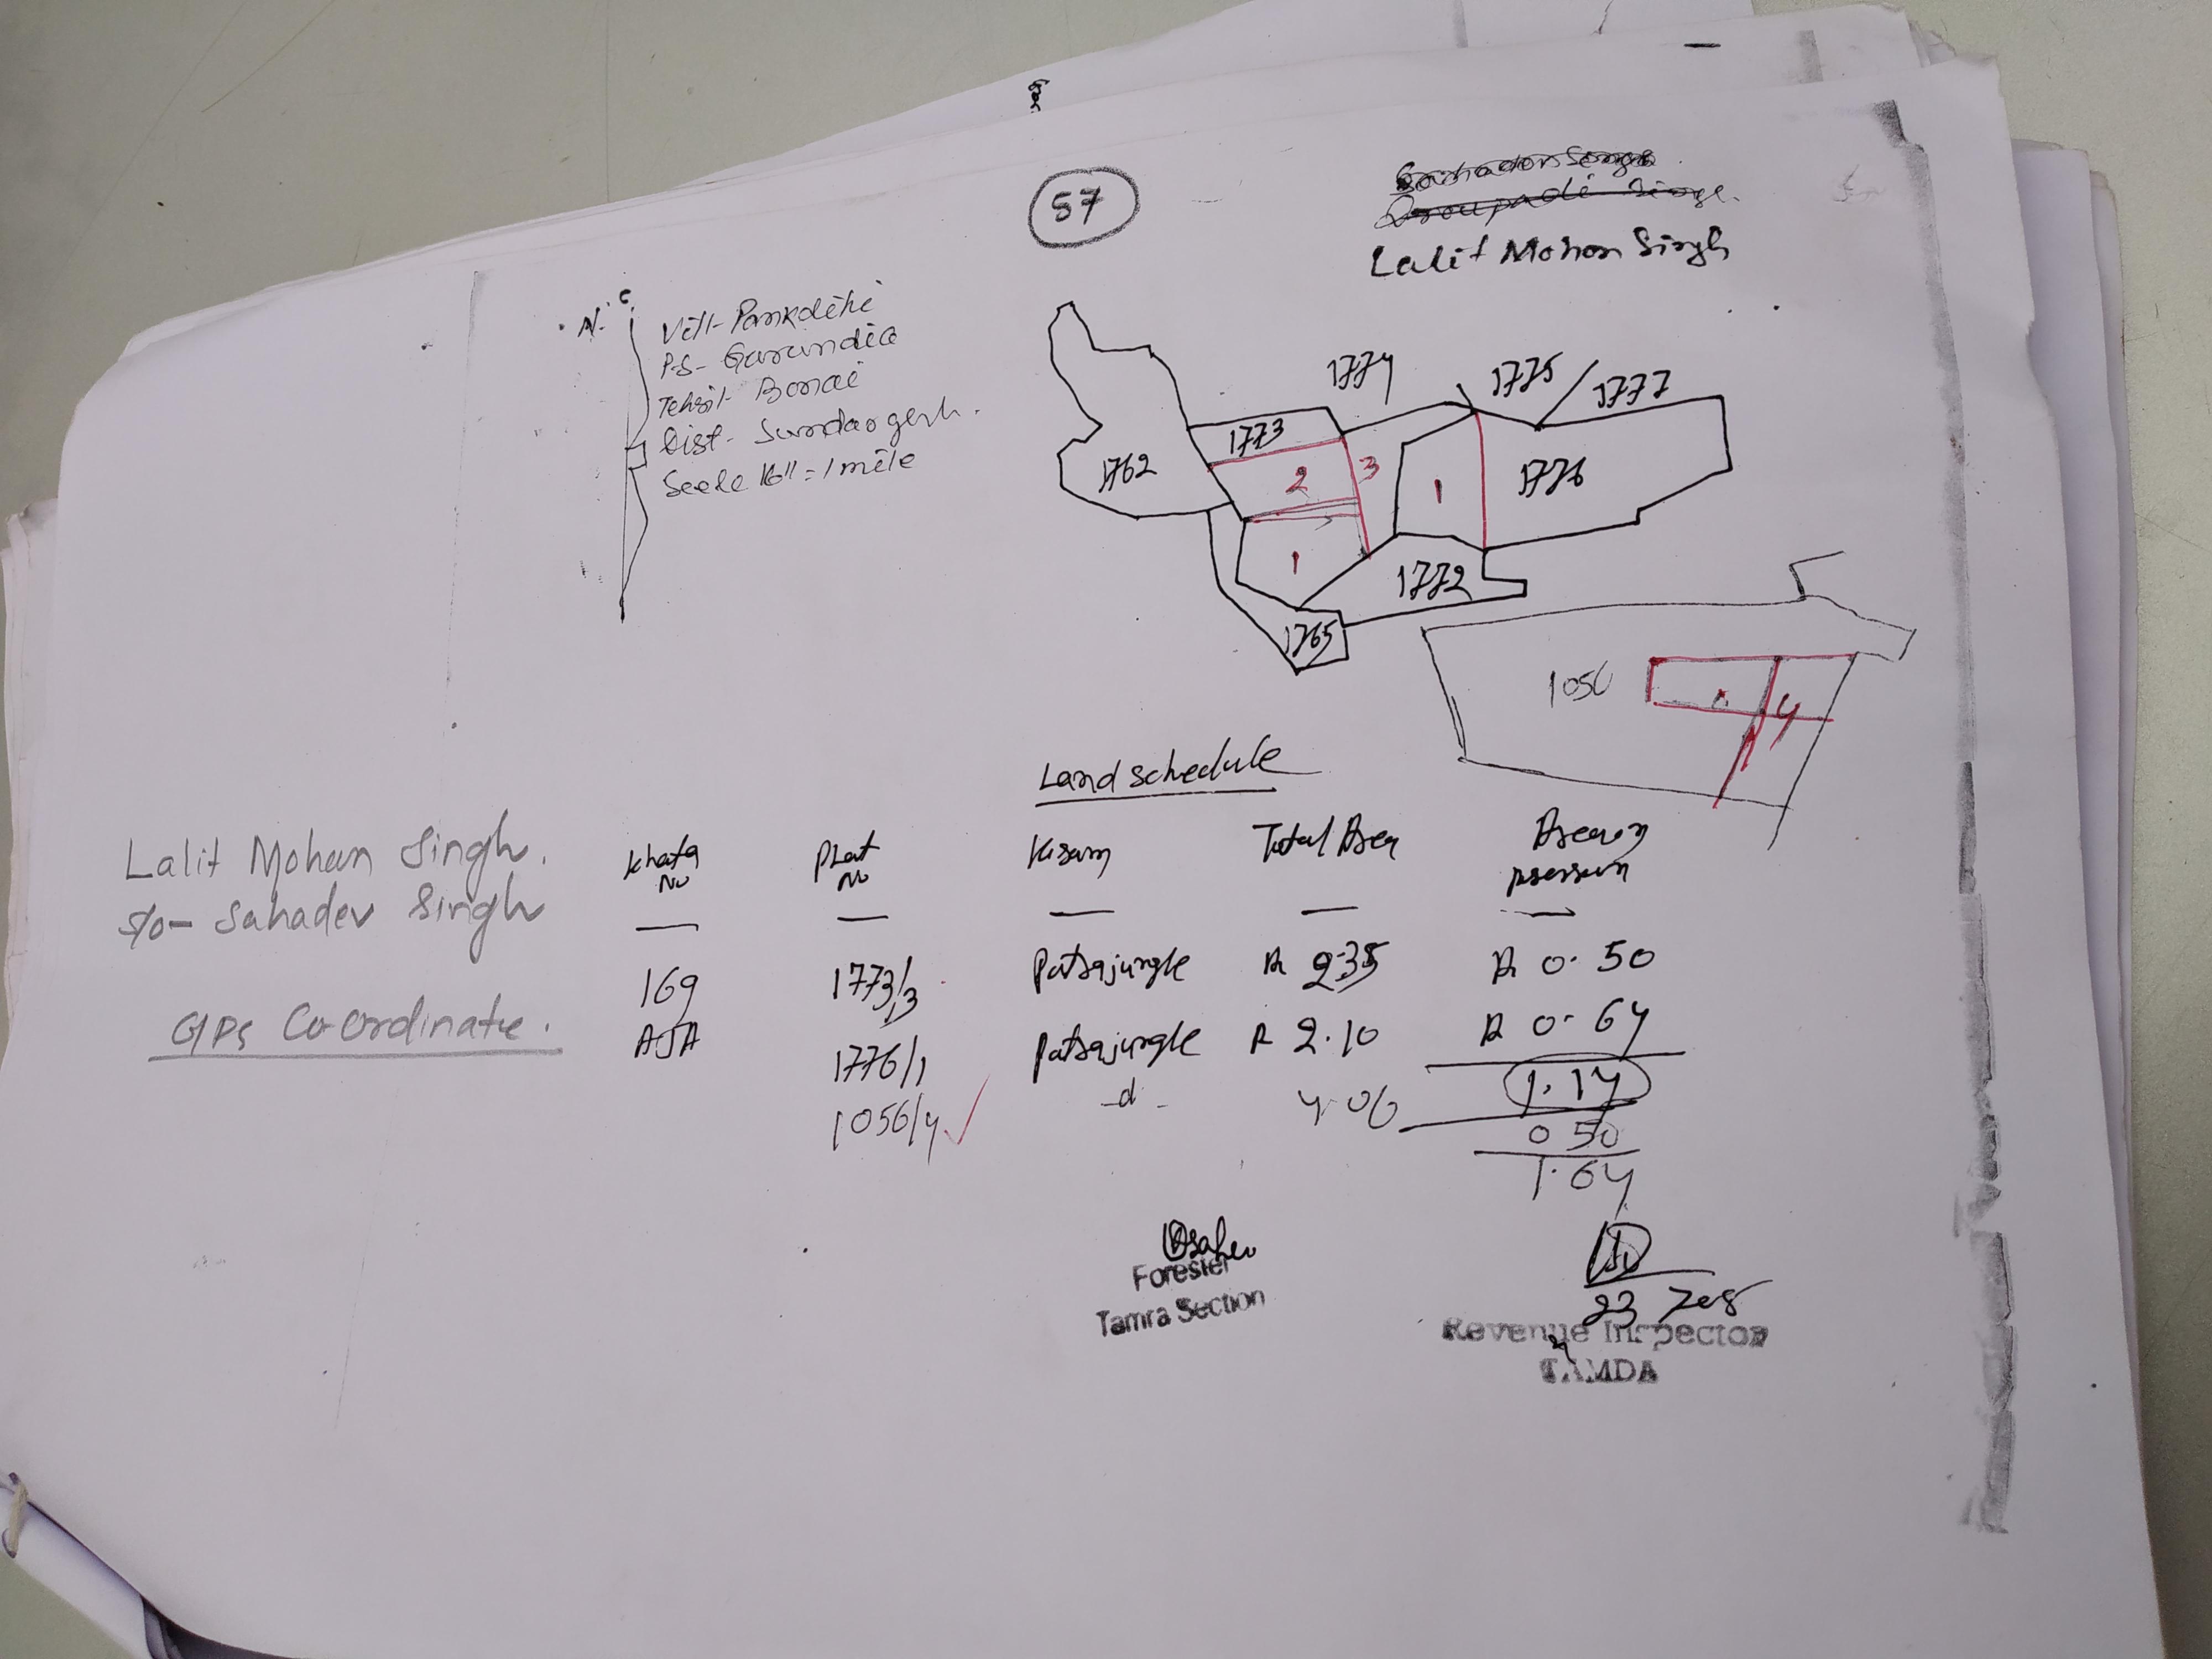 57
Lalit Mohan Singh
N.
Vill- Pankdihi
P.S- Gurundia
Tehsil- Bonai
Dist- Sundargarh.
Scale 16" = 1 mile
1774
1775
1777
1773
1762
2
3
1
1776
1
1772
1765
1056
4
Land schedule
Lalit Mohan Singh.
S/o- Sahadev Singh
GPS Co-ordinate.
Khata No
Plot No
Kisam
Total Area
169
AJA
1773/3
Patrajungle
R 2.35
R 0.50
1776/1
Patrajungle
R 2.10
R 0.64
1.14
1056/4
-d-
4.06
0.50
1.64
Forester
Tamra Section
Revenue Inspector
TAMDA